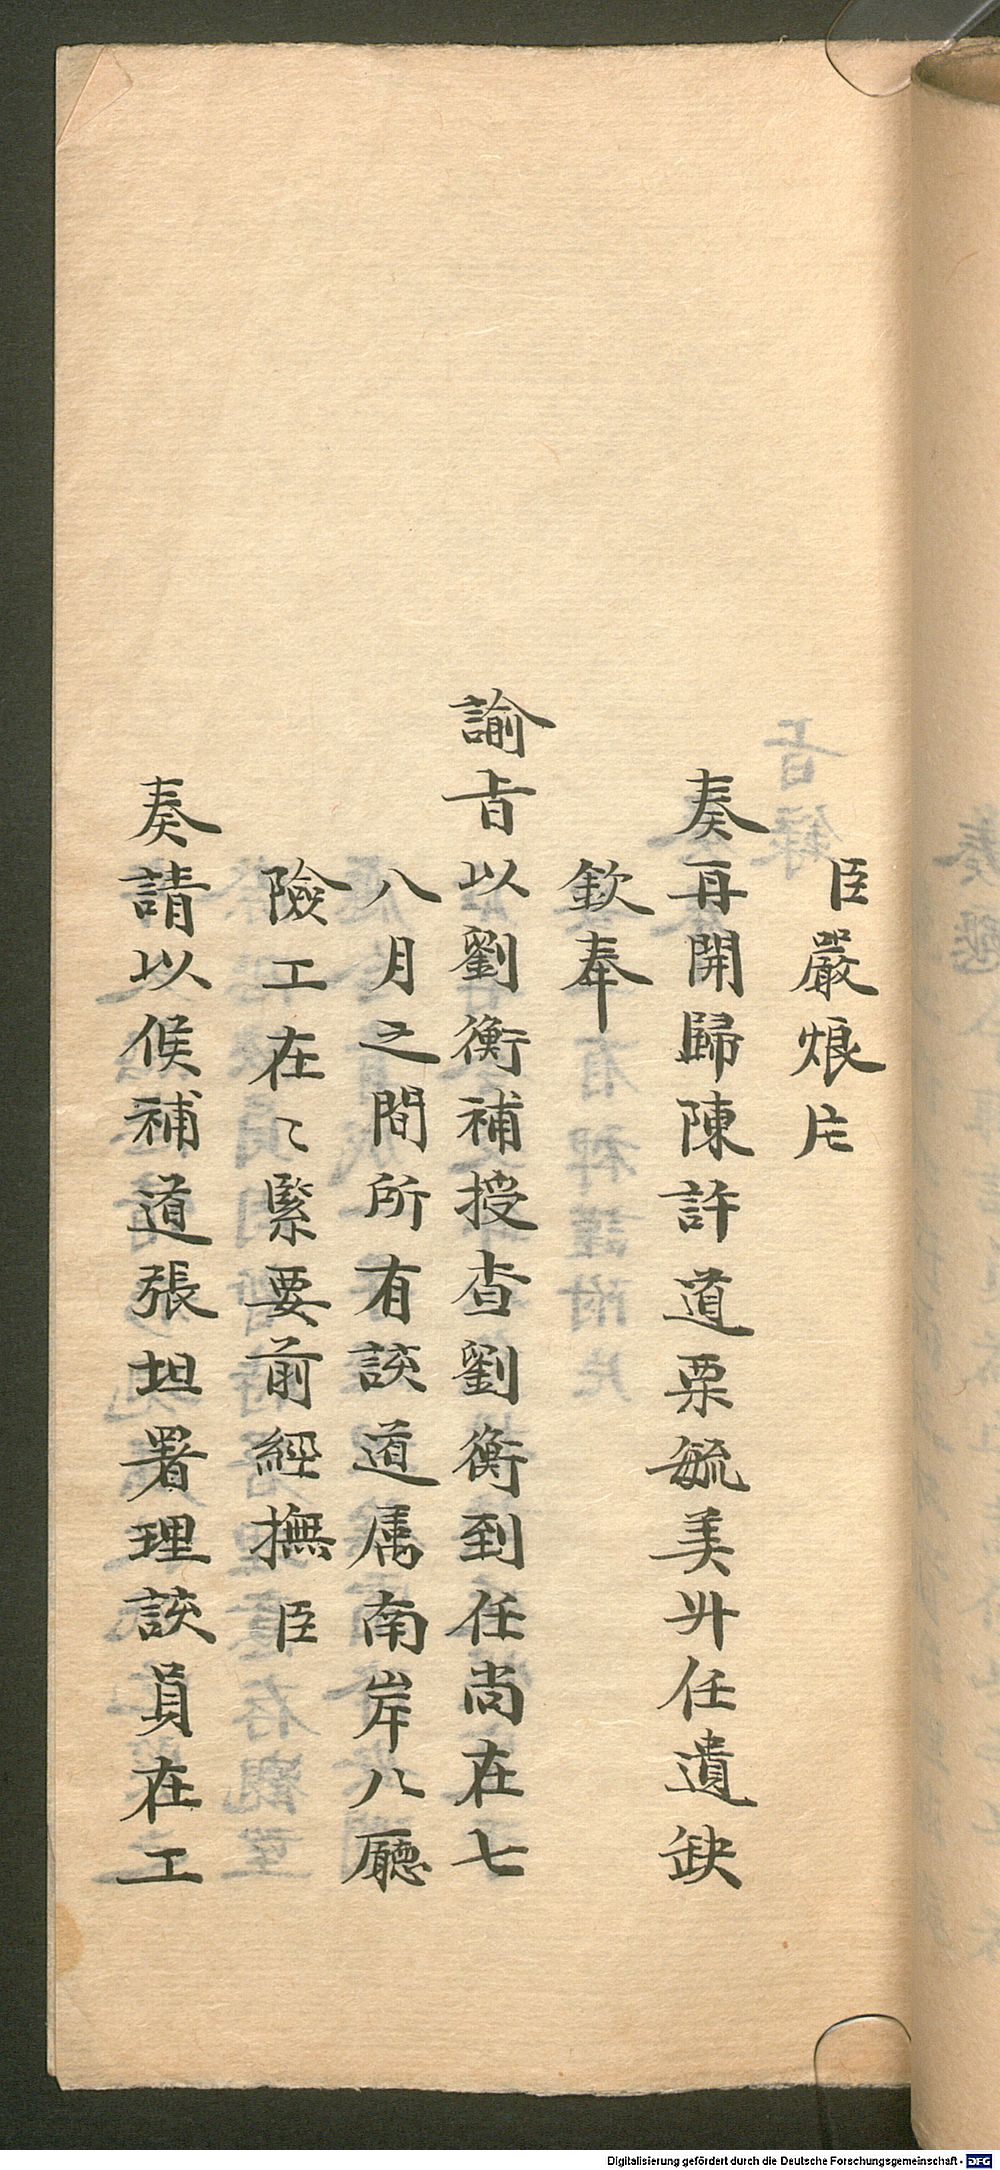 臣嚴烺片
奏再開歸陳許道栗毓美升任遺缺
欽奉
諭旨以劉衡補授查劉衡到任尚在七
八月之間所有該道属南岸八廳
險工在〻緊要前經撫臣
奏請以候補道張坦署理該員在工
Digitalisierung gefördert durch die Deutsche Forschungsgemeinschaft - DFG